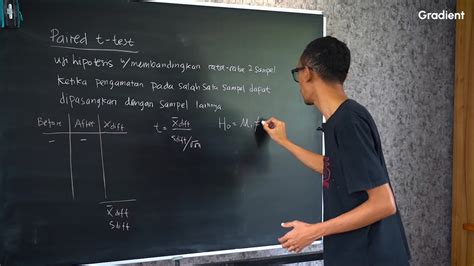 Gradient
Paired t-test
uji hipotesis u/ membandingkan rata-rata 2 sampel
ketika pengamatan pada salah satu sampel dapat
dipasangkan dengan sampel lainnya
Before | After | Xdiff
- | - |
X̄diff
Sdiff
t = X̄diff
Sdiff/√n
H₀ = M₁